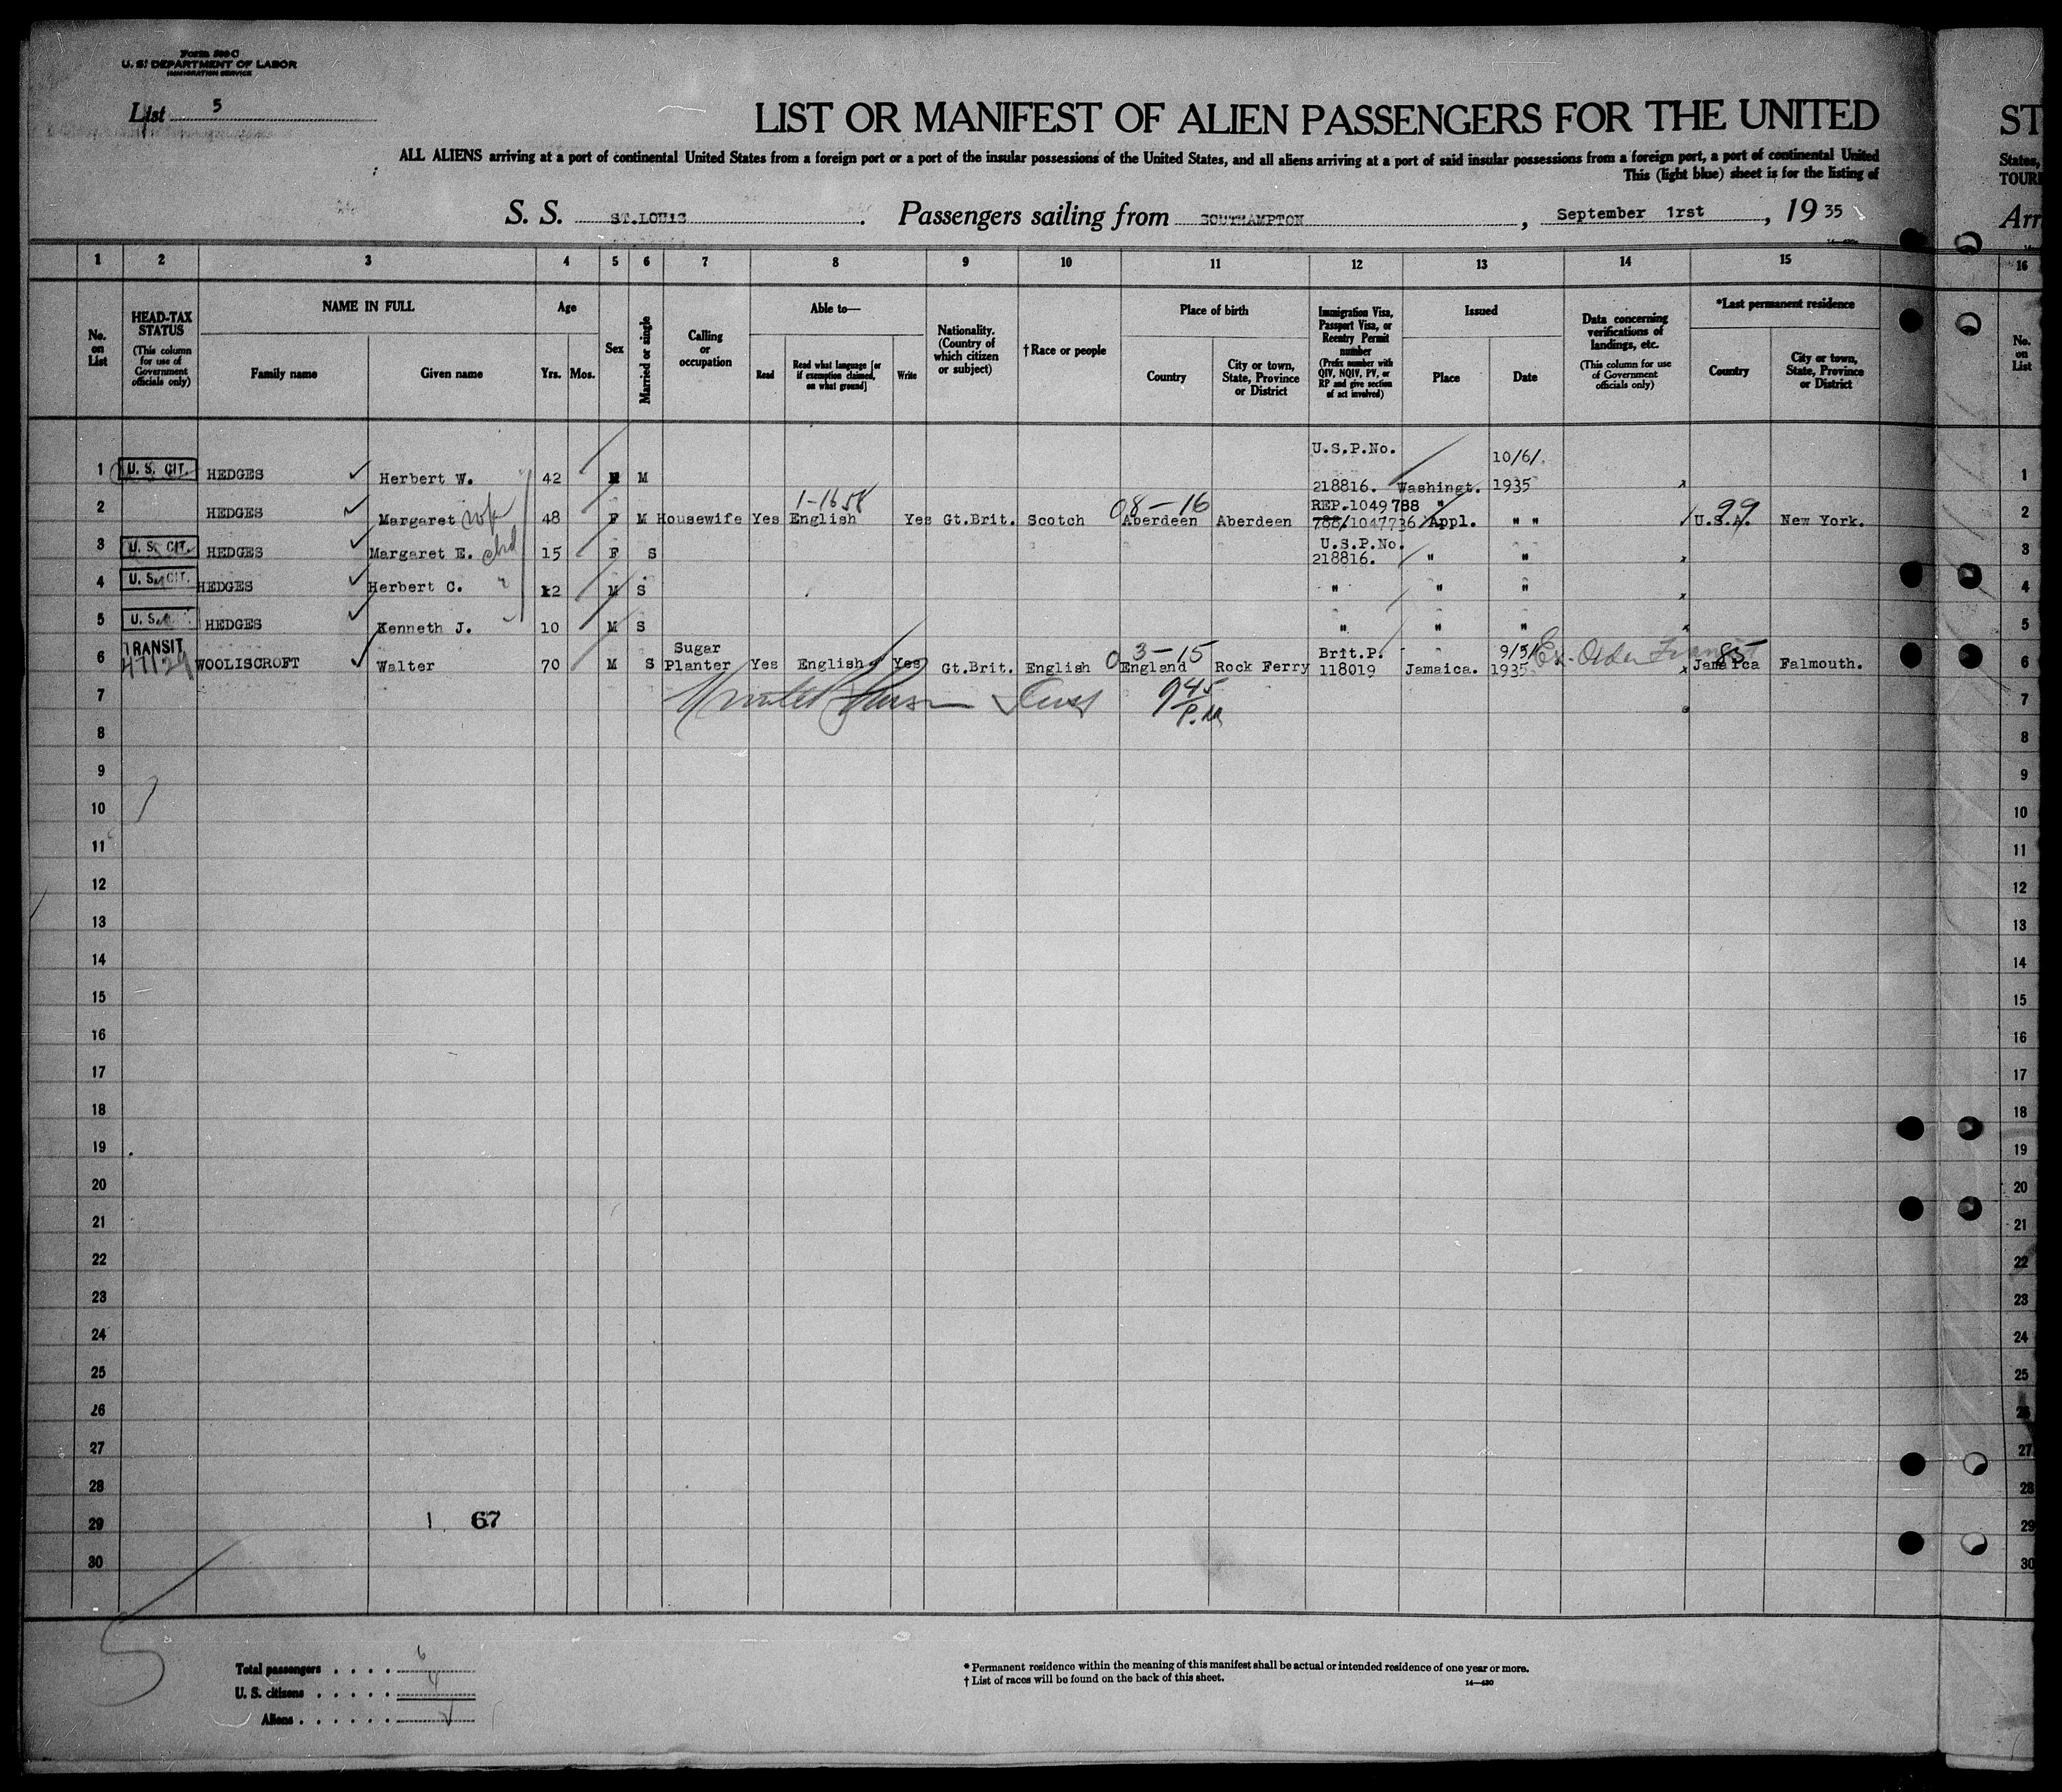 Form 500 C
U. S. DEPARTMENT OF LABOR
IMMIGRATION SERVICE
List 5
LIST OR MANIFEST OF ALIEN PASSENGERS FOR THE UNITED
ST
ALL ALIENS arriving at a port of continental United States from a foreign port or a port of the insular possessions of the United States, and all aliens arriving at a port of said insular possessions from a foreign port, a port of continental United
States,
This (light blue) sheet is for the listing of
TOURI
S. S. ST.LOUIS. Passengers sailing from SOUTHAMPTON, September 1rst, 19 35
Arri
1 2 3 4 5 6 7 8 9 10 11 12 13 14 15 16
No. on List
HEAD-TAX STATUS (This column for use of Government officials only)
NAME IN FULL
Family name
Given name
Age
Yrs. Mos.
Sex
Married or single
Calling or occupation
Able to—
Read
Read what language [or if exemption claimed, on what ground]
Write
Nationality. (Country of which citizen or subject)
†Race or people
Place of birth
Country
City or town, State, Province or District
Immigration Visa, Passport Visa, or Reentry Permit number (Prefix number with QIV, NQIV, PV, or RP and give section of act involved)
Issued
Place
Date
Data concerning verifications of landings, etc. (This column for use of Government officials only)
*Last permanent residence
Country
City or town, State, Province or District
No. on List
1 U. S. CIT. HEDGES Herbert W. 42 M M U.S.P.No. 218816. Washingt. 10/6/. 1935 1
1-1658 08-16 99
2 HEDGES Margaret wife 48 F M Housewife Yes English Yes Gt.Brit. Scotch Aberdeen Aberdeen REP.1049788 788/1047736 Appl. " " U.S.A. New York. 2
3 U. S. CIT. HEDGES Margaret E. chd 15 F S U.S.P.No. 218816. " " 3
4 U. S. CIT. HEDGES Herbert C. " 12 M S " " " 4
5 U. S. HEDGES Kenneth J. 10 M S " " " 5
03-15 85
6 TRANSIT 47129 WOOLISCROFT Walter 70 M S Sugar Planter Yes English Yes Gt.Brit. English England Rock Ferry Brit.P. 118019 Jamaica. 9/5/ 1935 Transit Jamaica Falmouth. 6
7 9 45 P.M. 7
8 8
9 9
10 10
11 11
12 12
13 13
14 14
15 15
16 16
17 17
18 18
19 19
20 20
21 21
22 22
23 23
24 24
25 25
26 26
27 27
28 28
29 1 67 29
30 30
5
Total passengers . . . . 6
U. S. citizens . . . . . 4
Aliens . . . . . .
* Permanent residence within the meaning of this manifest shall be actual or intended residence of one year or more.
† List of races will be found on the back of this sheet.
14—480